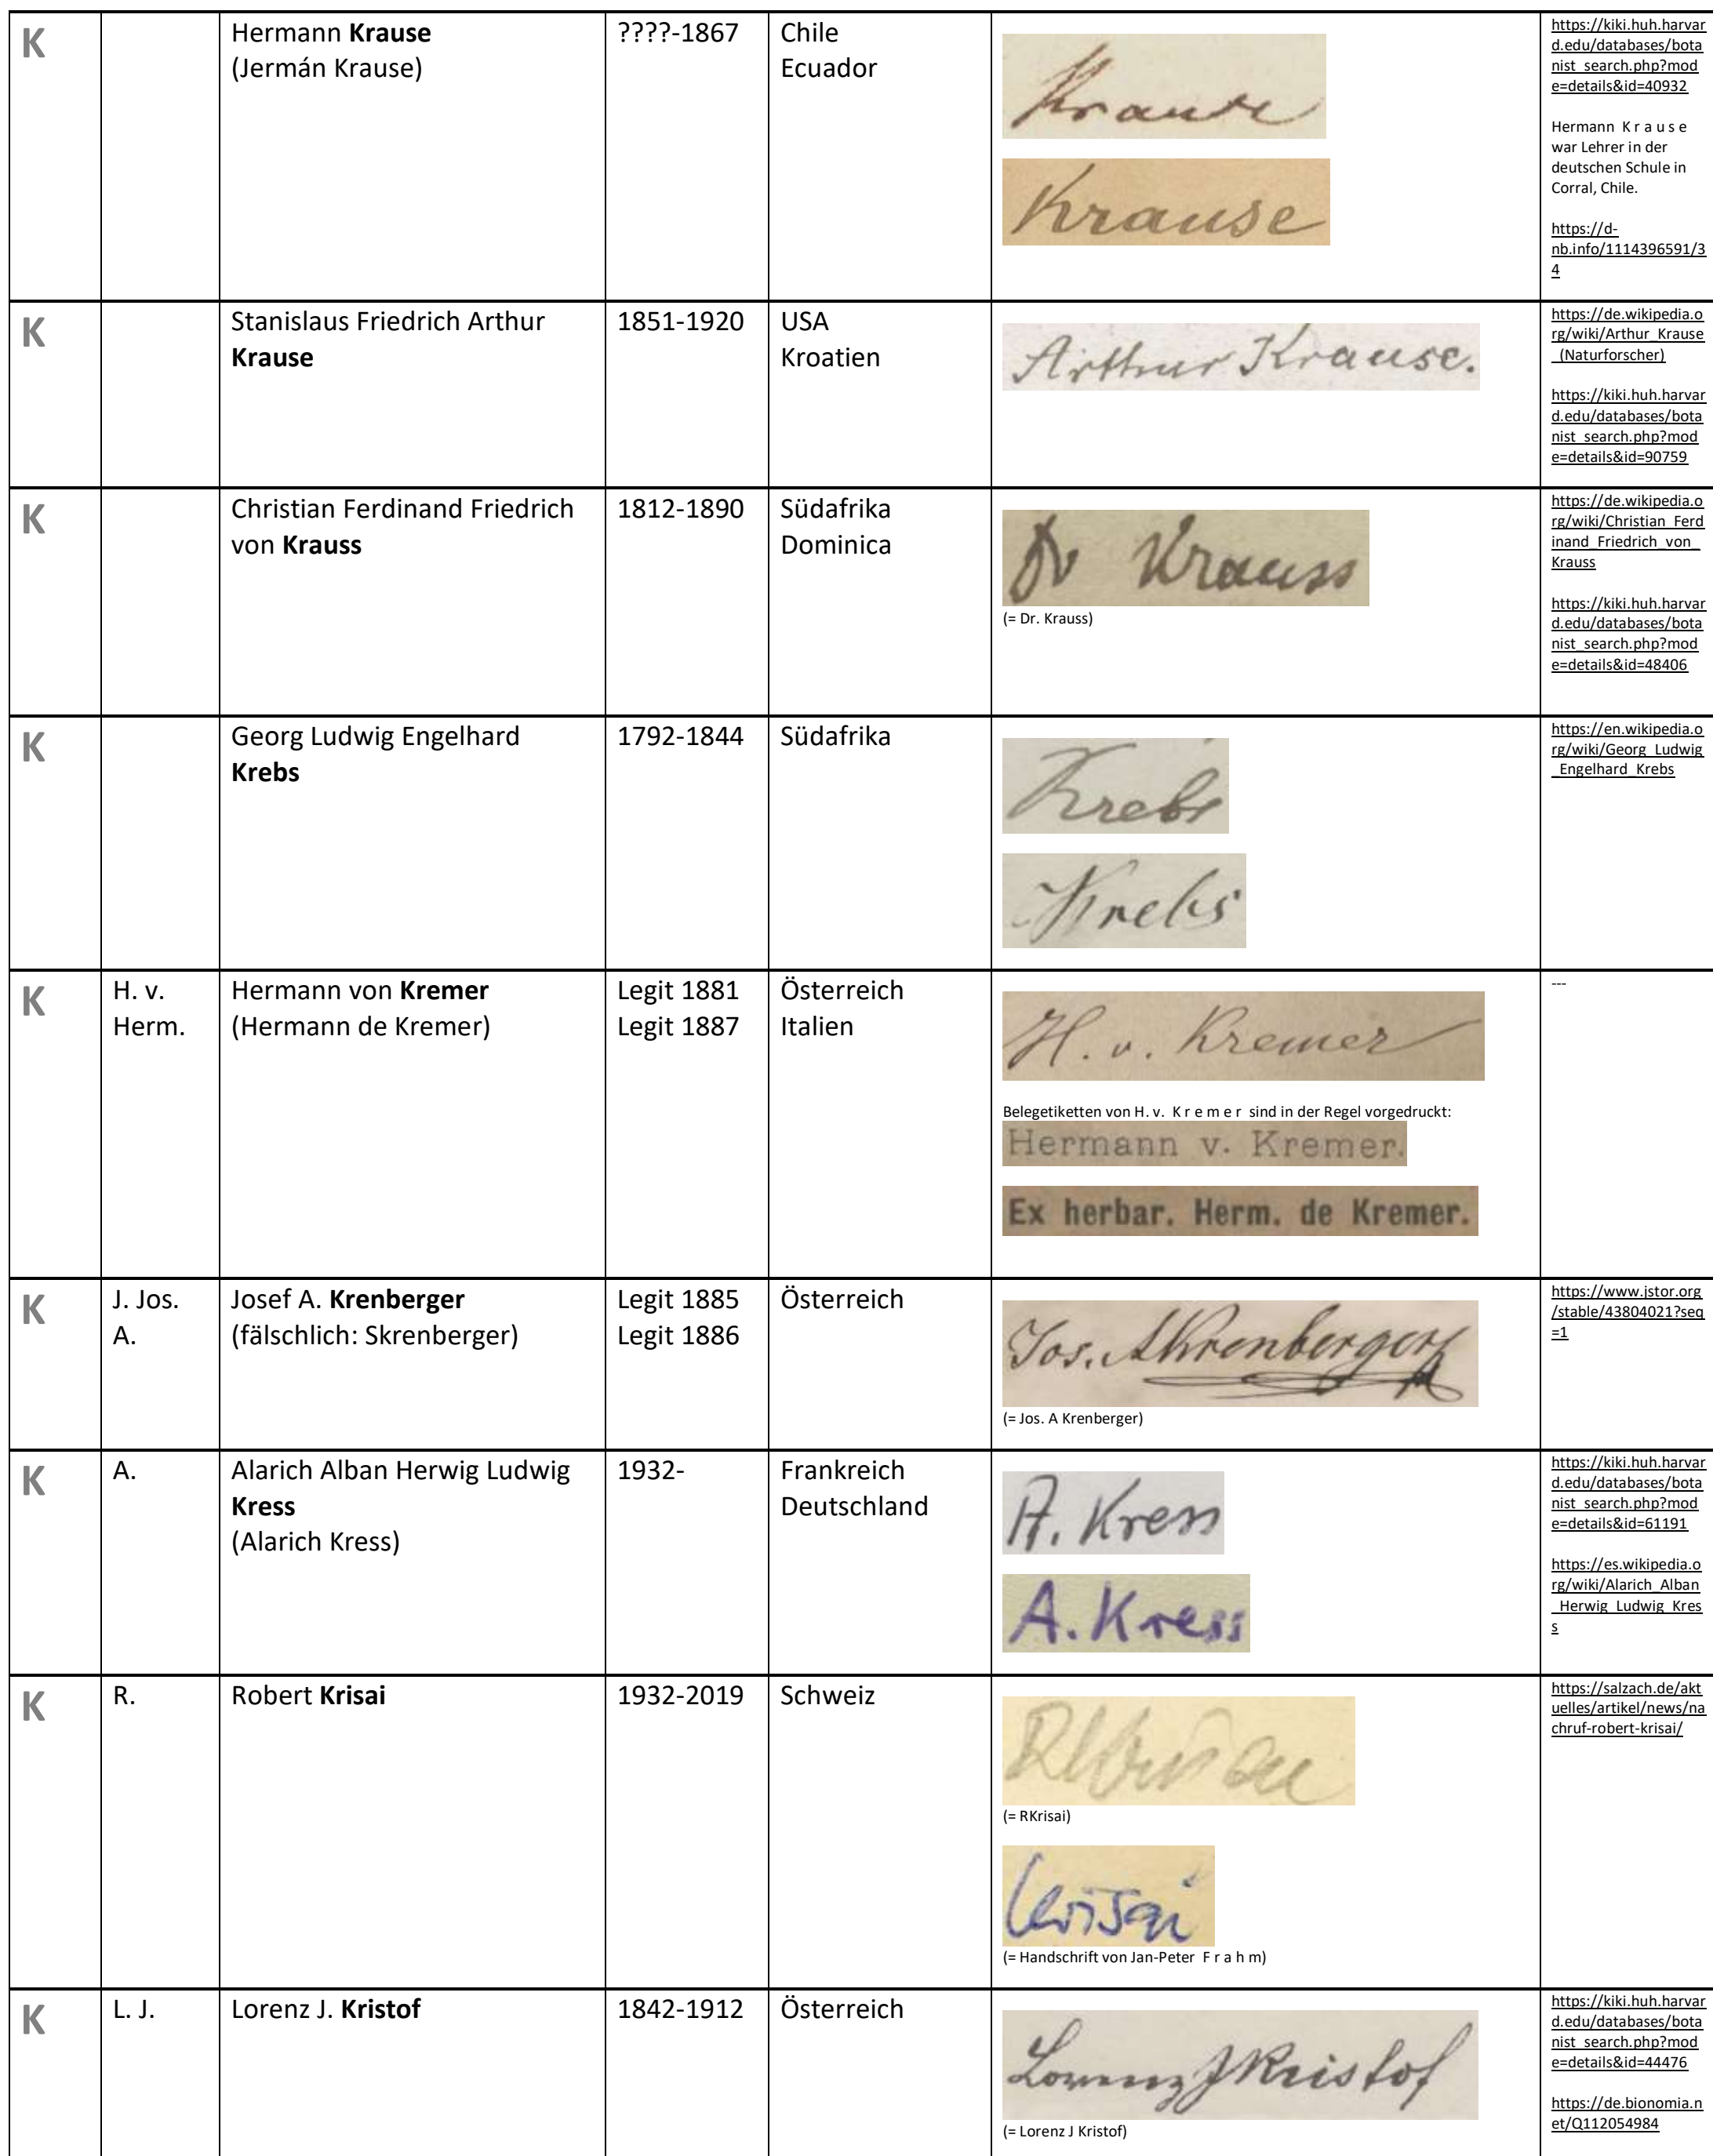 K
Hermann Krause
(Jermán Krause)
????-1867
Chile
Ecuador
Krause
Krause
https://kiki.huh.harvar
d.edu/databases/bota
nist_search.php?mod
e=details&id=40932
Hermann K r a u s e
war Lehrer in der
deutschen Schule in
Corral, Chile.
https://d-
nb.info/1114396591/3
4
K
Stanislaus Friedrich Arthur
Krause
1851-1920
USA
Kroatien
Arthur Krause.
https://de.wikipedia.o
rg/wiki/Arthur_Krause
_(Naturforscher)
https://kiki.huh.harvar
d.edu/databases/bota
nist_search.php?mod
e=details&id=90759
K
Christian Ferdinand Friedrich
von Krauss
1812-1890
Südafrika
Dominica
Dr Krauss
(= Dr. Krauss)
https://de.wikipedia.o
rg/wiki/Christian_Ferd
inand_Friedrich_von_
Krauss
https://kiki.huh.harvar
d.edu/databases/bota
nist_search.php?mod
e=details&id=48406
K
Georg Ludwig Engelhard
Krebs
1792-1844
Südafrika
Krebs
Krebs
https://en.wikipedia.o
rg/wiki/Georg_Ludwig
_Engelhard_Krebs
K
H. v.
Herm.
Hermann von Kremer
(Hermann de Kremer)
Legit 1881
Legit 1887
Österreich
Italien
H. v. Kremer
Belegetiketten von H. v. K r e m e r sind in der Regel vorgedruckt:
Hermann v. Kremer.
Ex herbar. Herm. de Kremer.
---
K
J. Jos.
A.
Josef A. Krenberger
(fälschlich: Skrenberger)
Legit 1885
Legit 1886
Österreich
Jos. AKrenberger
(= Jos. A Krenberger)
https://www.jstor.org
/stable/43804021?seq
=1
K
A.
Alarich Alban Herwig Ludwig
Kress
(Alarich Kress)
1932-
Frankreich
Deutschland
A. Kress
A. Kress
https://kiki.huh.harvar
d.edu/databases/bota
nist_search.php?mod
e=details&id=61191
https://es.wikipedia.o
rg/wiki/Alarich_Alban
_Herwig_Ludwig_Kres
s
K
R.
Robert Krisai
1932-2019
Schweiz
RKrisai
(= RKrisai)
Krisai
(= Handschrift von Jan-Peter F r a h m)
https://salzach.de/akt
uelles/artikel/news/na
chruf-robert-krisai/
K
L. J.
Lorenz J. Kristof
1842-1912
Österreich
Lorenz J Kristof
(= Lorenz J Kristof)
https://kiki.huh.harvar
d.edu/databases/bota
nist_search.php?mod
e=details&id=44476
https://de.bionomia.n
et/Q112054984